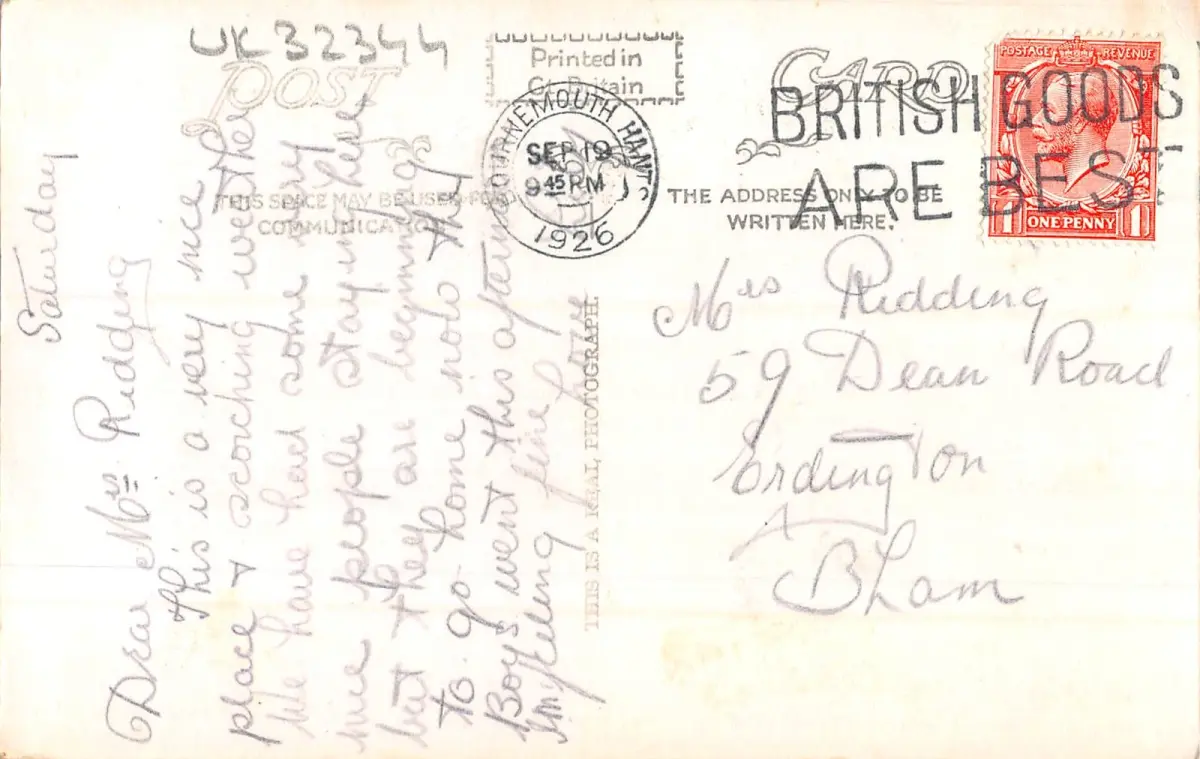 UK 32344
POST CARD
Printed in
Gt. Britain
BOURNEMOUTH HANTS
SEP 19
9 45 PM
1926
BRITISH GOODS
ARE BEST
POSTAGE REVENUE
1 ONE PENNY 1
THIS SPACE MAY BE USED FOR
COMMUNICATION
THE ADDRESS ONLY TO BE
WRITTEN HERE.
THIS IS A REAL PHOTOGRAPH.
Saturday
Dear Mrs Ridding
This is a very nice
place & scorching weather
We have had some very
nice people staying here
but they are beginning
to go home now the
Boys went this afternoon
Im feeling fine
Mrs Ridding
59 Dean Road
Erdington
Bham